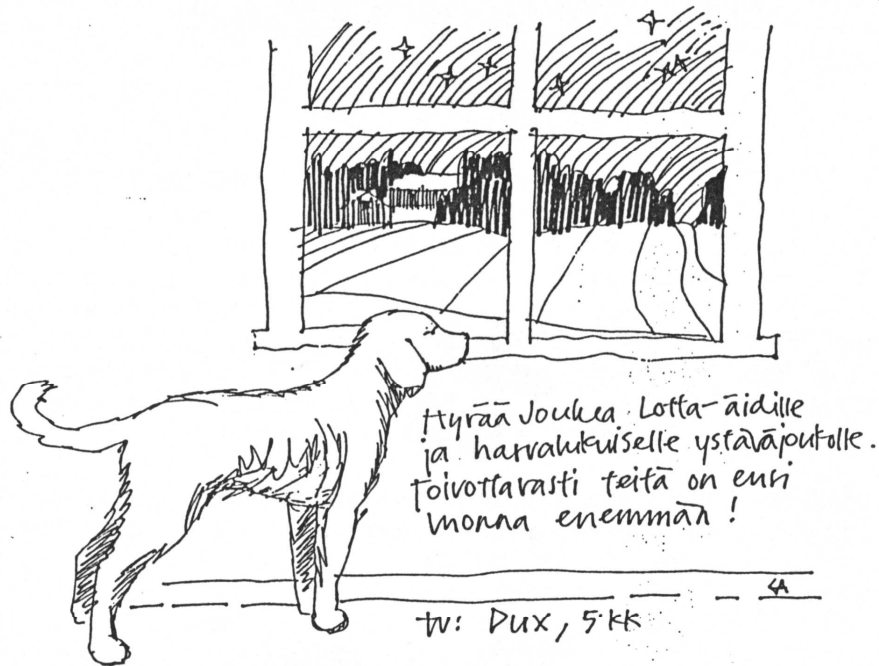 Hyvää Joulua Lotta-äidille
ja harvalukuiselle ystäväjoukolle.
Toivottavasti teitä on ensi
vuonna enemmän!
tv: Dux, 5 kk